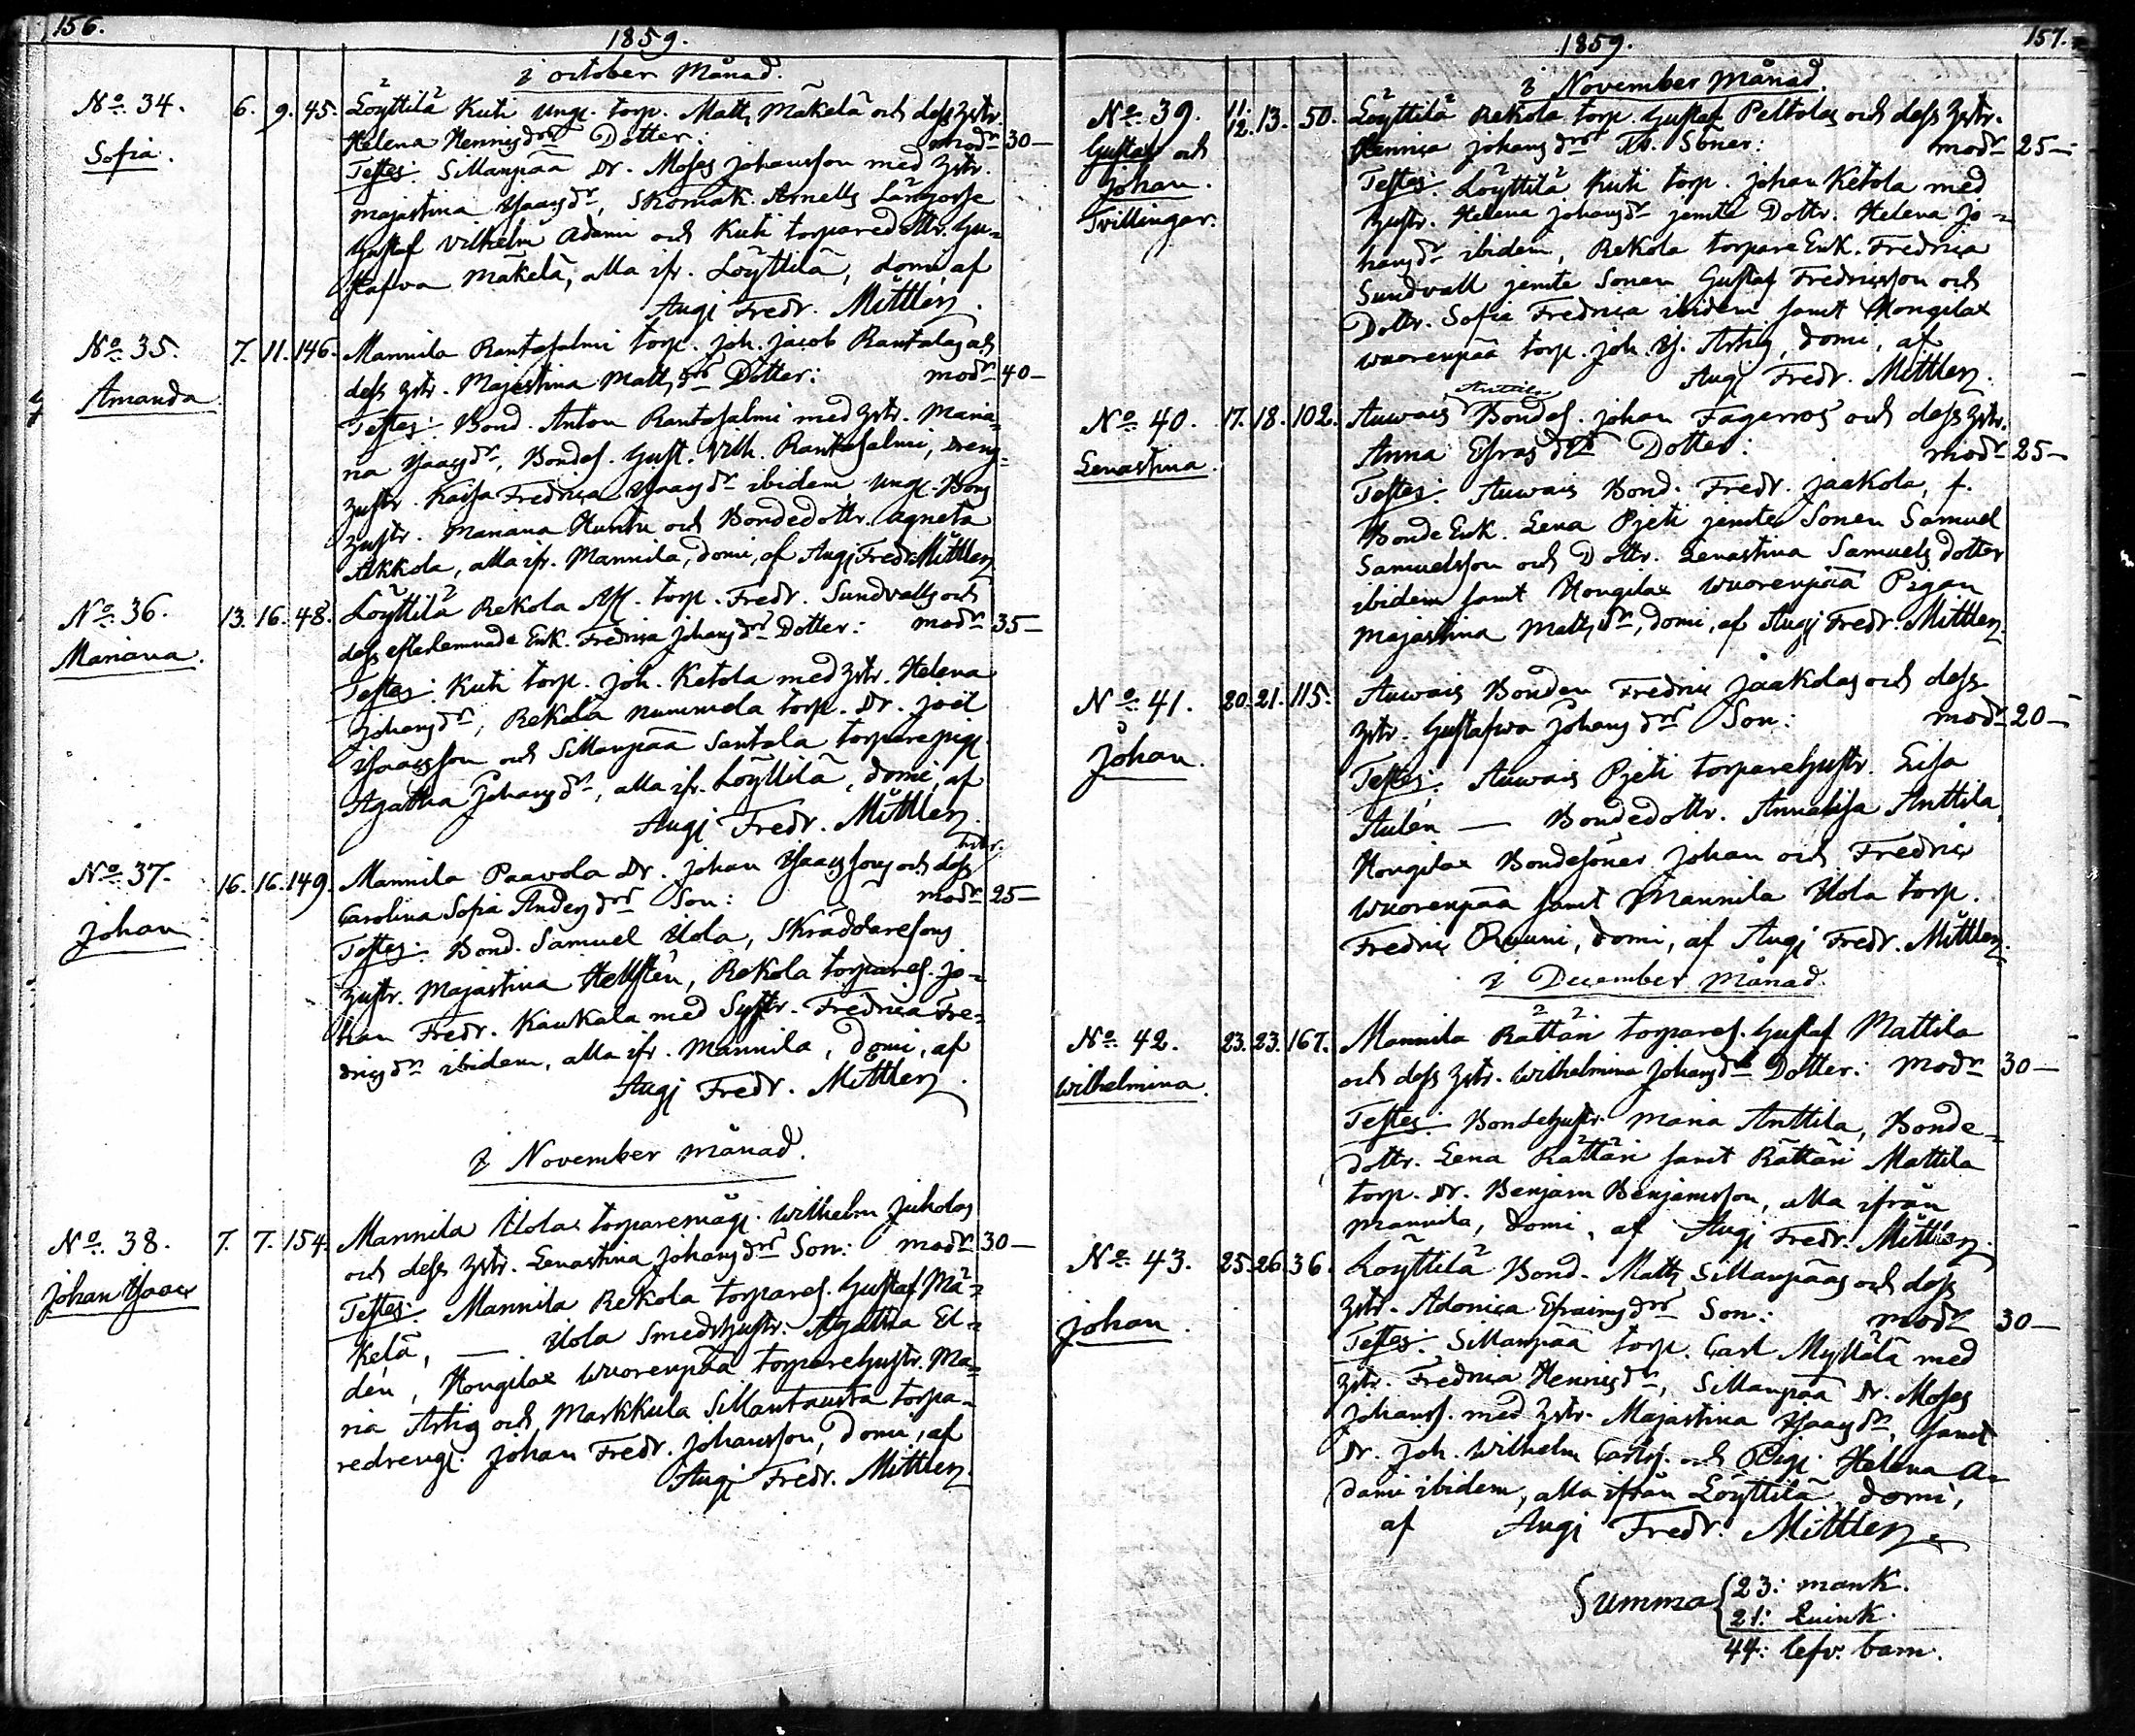 156.
1859.
i October Månad.
No. 34. 6. 9. 45. Löyttilä Kuti ung. torp. Matts Mäkelä och dess hstr.
Sofia. Helena Henricsdrs Dotter: modr 30 —
Testes: Sillanpää Dr. Moses Johansson med hstr.
Majastina Isaacsdr, Skomak. Arnells Lärgosse
Gustaf Vilhelm Adami och Kuti torparedottr. Gu=
stafva Mäkelä, alla ifr. Löyttilä, domi, af
Augj Fredr. Mittler.
No. 35. 7. 11. 146. Mannila Rantasalmi torp. Joh. Jacob Rantalas och
Amanda dess hstr. Majastina Mattsdrs Dotter: modr 40 —
Testes: Bond. Anton Rantasalmi med hstr. Maria=
na Isaacsdr, Bondes. Gust. Vilh. Rantasalmi, Dreng=
hustr. Kaisa Fredrica Isaacsdr ibidem, ung. Bond
hustr. Mariana Huntu och Bondedottr. Agneta
Akkola, alla ifr. Mannila, domi, af Augj Fredr. Mittler
No. 36. 13. 16. 48. Löyttilä Rekola Afl. torp. Fredr. Sundvalls och
Mariana. dess efterlemnade Enk. Fredrica Johansdrs Dotter: modr 35 —
Testes: Kuti torp. Joh. Ketola med hstr. Helena
Johansdr, Rekola Nummela torp. Dr. Joël
Isaacsson och Sillanpää Santala torparepig.
Agatha Johansdr, alla ifr. Löyttilä, domi, af
Augj Fredr. Mittler.
No. 37. 16. 16. 149. Mannila Paavola Dr. Johan Isaacssons och dess hstr.
Johan Carolina Sofia Andersdrs Son: modr 25 —
Testes: Bond. Samuel Uola, Skräddaresons
hustr. Majastina Hellstén, Rekola torpares. Jo=
han Fredr. Kaukala med Systr. Fredrica Fre=
dricsdr ibidem, alla ifr. Mannila, domi, af
Augj Fredr. Mittler.
i November månad.
No. 38. 7. 7. 154. Mannila Uola torparemåg. Wilhelm Juholas
Johan Isaac och dess hstr. Lenastina Johansdrs Son: modr 30 —
Testes: Mannila Rekola torpares. Gustaf Mä=
kelä, — Uola Smedshustr. Agatha El=
dén, Hongilax Wuorenpää torparehustr. Ma=
ria Artig och Markkula Sillantausta torpa=
redreng. Johan Fredr. Johansson, domi, af
Augj Fredr. Mittler.
157.
1859.
i November Månad.
No. 39. 11. 12. 13. 50. Löyttilä Rekola torp. Gustaf Peltolas och dess hstr.
Gustaf och Henrica Johansdrs Tv. Söner: modr 25 —
Johan. Testes: Löyttilä Kuti torp. Johan Ketola med
Tvillingar. hustr. Helena Johansdr jemte Dottr. Helena Jo=
hansdr ibidem, Rekola torpare Enk. Fredrica
Sundvall jemte Sonen Gustaf Fredricsson och
Dottr. Sofia Fredrica ibidem samt Hongilax
Wuorenpää torp. Joh. Is. Artig, domi, af
Augj Fredr. Mittler.
Anttila
No. 40. 17. 18. 102. Auwais Bondes. Johan Fagerros och dess hstr.
Lenastina. Anna Esrasdrs Dotter: modr 25 —
Testes: Auwais Bond. Fredr. Jaakola, f.
Bonde Enk. Lena Pjeti jemte Sonen Samuel
Samuelsson och Dottr. Lenastina Samuelsdotter
ibidem samt Hongilax Wuorenpää Pigan
Majastina Mattsdr, domi, af Augj Fredr. Mittler.
No. 41. 20. 21. 115. Auwais Bonden Fredric Jaakolas och dess
Johan. hstr. Gustafwa Johansdrs Son: modr 20 —
Testes: Auwais Pjeti torparehustr. Lisa
Aulén — Bondedottr. Annalisa Anttila,
Hongilax Bondesöner Johan och Fredric
Wuorenpää samt Mannila Uola torp.
Fredric Ruuni, domi, af Augj Fredr. Mittler.
i December Månad.
No. 42. 23. 23. 167. Mannila Rättäri torpares. Gustaf Mattila
Wilhelmina. och dess hstr. Wilhelmina Johansdrs Dotter: modr 30 —
Testes: Bondehustr. Maria Anttila, Bonde=
dottr. Lena Rättäri samt Rättäri Mattila
torp. Dr. Benjam Benjamsson, alla ifrån
Mannila, domi, af Augj Fredr. Mittler.
No. 43. 25. 26. 36. Löyttilä Bond. Matts Sillanpääs och dess
Johan. hstr. Adonica Efraimsdrs Son: modr 30 —
Testes: Sillanpää torp. Carl Myllälä med
hstr. Fredrica Henricsdr, Sillanpää Dr. Moses
Johanss. med hstr. Majastina Isaacsdr, samt
Dr. Joh. Wilhelm Carlss. och Pig. Helena A=
dami ibidem, alla ifrån Löyttilä, domi,
af Augj Fredr. Mittler.
Summa { 23: mank.
21: Quink.
44: lefv. barn.